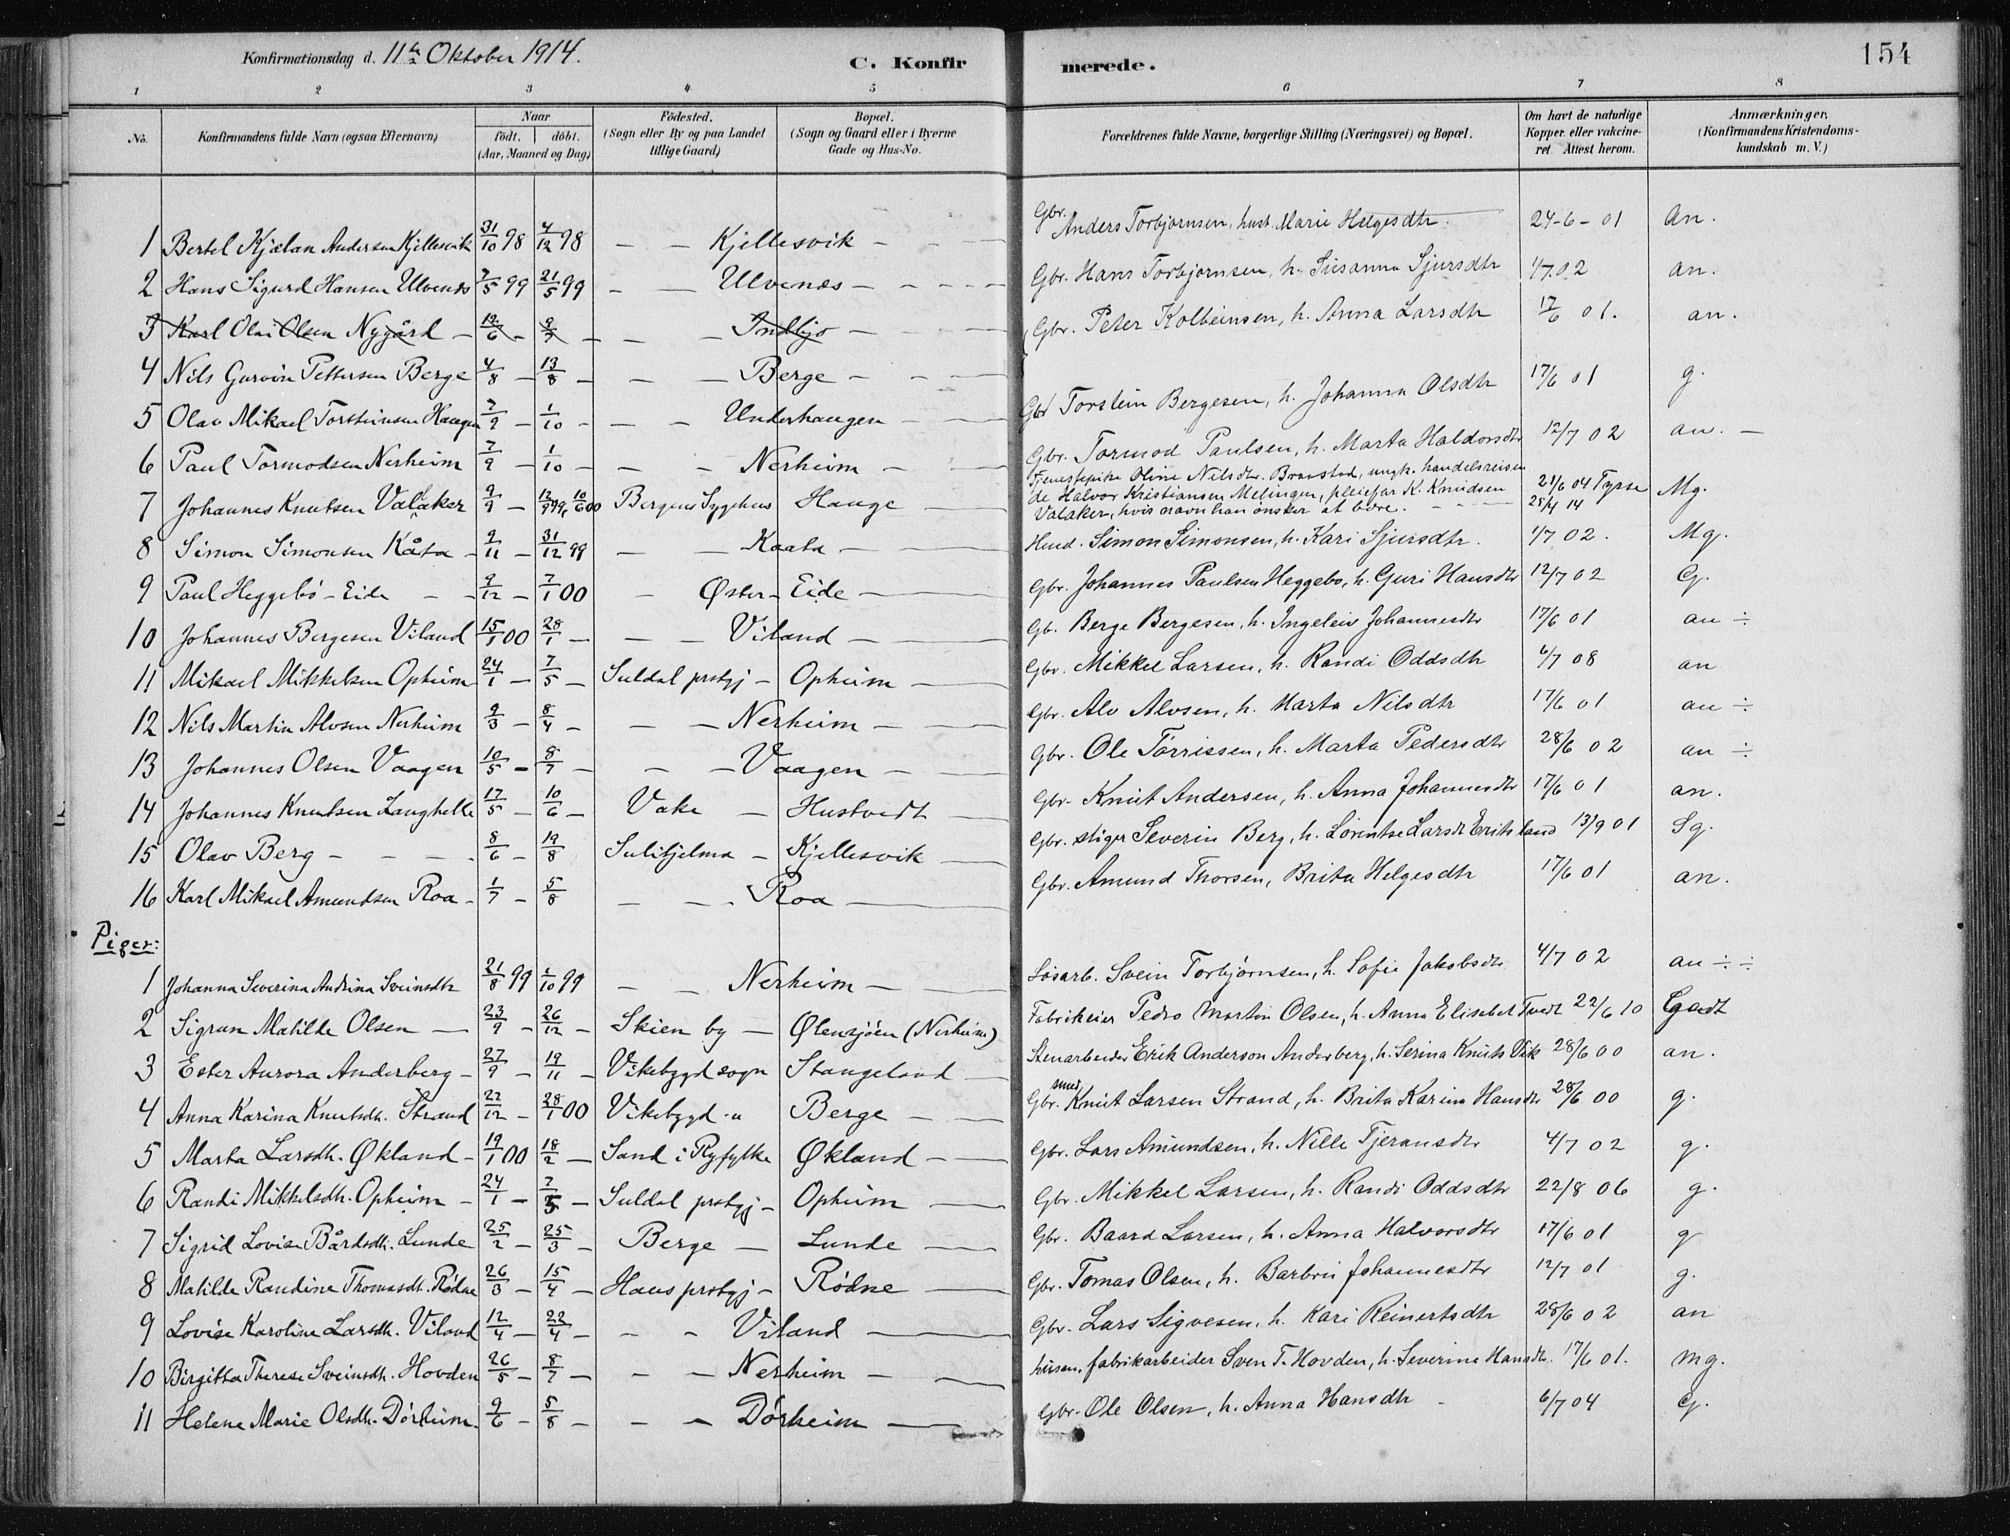 Konfirmationsdag d. 11te Oktober 1914.
C. Konfirmerede.
154
1 2 3 4 5 6 7 8
No.
Konfirmandens fulde Navn (ogsaa Efternavn)
Naar
födt. döbt.
(Aar, Maaned og Dag)
Födested.
(Sogn eller By og paa Landet
tillige Gaard)
Bopæl.
(Sogn og Gaard eller i Byerne
Gade og Hus-No.
Forældrenes fulde Navne, borgerlige Stilling (Næringsvei) og Bopæl.
Om havt de naturlige
Kopper eller vakcine-
ret. Attest herom.
Anmærkninger.
(Konfirmandens Kristendoms-
kundskab m. V.)
1 Bertel Kjælan Andersen Kjellesvik 31/10 98 4/12 98 — — Kjellesvik — Gbr. Anders Torbjørnsen, hust. Marie Helgesdtr. 24-6-01 an.
2 Hans Sigurd Hansen Ulvenes 7/5 99 21/5 99 — — Ulvenæs — Gbr. Hans Torbjørnsen, h. Susanna Sjursdtr 1/7.02 an.
3 Karl Olai Olsen Nygård — — — Indbjo —
4 Nils Gurvin Pettersen Berge 4/8 — 13/8 — — — Berge — Gbr. Peter Kolbeinsen, h. Anna Larsdtr 17/6 01. an.
5 Olav Mikael Torsteinsen Haugen 7/9 — 1/10 — — — Underhaugen — Gbr Torstein Bergesen, h. Johanna Olsdtr 17/6 01 g.
6 Paul Tormodsen Nerheim 7/9 — 1/10 — — — Nerheim — Gbr. Tormod Paulsen, h. Marta Haldorsdtr 12/7 02 an. —
7 Johannes Knutsen Valaker 9/9 — 12/9 99, 10/6 00 Bergens Sygehus Hauge — Tjenestepike Oline Nilsdtr. Bravstad, ungk. handelsreisen
de Halvor Kristiansen Mehingen, pleiefar K. Knudsen
Valaker, hvis navn han ønsker at bære. 21/6 04 Tysse 25/4 14 Mg.
8 Simon Simonsen Kåta 9/11 — 31/12 99 — Kaata — Husd. Simon Simonsen, h. Kari Sjursdtr. 1/7 02. Mg.
9 Paul Heggebö-Eide — 9/12 — 7/1 00 — Øster-Eide — Gbr. Johannes Paulsen Heggebø, h. Guri Hansdtr 12/7 02 G.
10 Johannes Bergesen Viland 15/1 00 28/1 — — — Viland — Gb. Berge Bergesen, h. Ingeleiv Johannesdtr 17/6 01 an ÷
11 Mikael Mikkelsen Opheim 24/1 — 7/5 — Suldal prstgj — Opheim — Gbr. Mikkel Larsen, h. Randi Oddsdtr 6/7 08 an
12 Nils Martin Alvsen Nerheim 9/3 — 8/4 — — — Nerheim — Gbr. Alv Alvsen, h. Marta Nilsdtr 17/6 01 an ÷
13 Johannes Olsen Vaagen 10/5 — 8/7 — — — Vaagen — Gbr. Ole Tørrissen, h. Marta Pedersdtr 28/6 02 an ÷
14 Johannes Knutsen Langhelle 17/5 — 10/6 — Vake — Hustvedt — Gbr. Knut Andersen, h. Anna Johannesdtr 17/6 01 an.
15 Olav Berg — — — 8/6 — 19/8 Sulitjelma — Kjellesvik — Gbr. stiger Severin Berg, h. Lorentse Larsdt Eriksland 13/9 01 Sg.
16 Karl Mikael Amundsen Roa — 1/7 — 5/8 — — Roa — Gbr. Amund Thorsen, Brita Helgesdtr 17/6 01 an.
Piger:
1 Johanna Severina Andrina Sveinsdtr 21/8 99 1/10 99 — — Nerheim — Løsarb. Svein Torbjørnsen, h. Sofie Jakobsdtr 4/7 02 an ÷ ÷
2 Sigrun Matilde Olsen — 23/9 — 26/12 — Skien by — Ølensjøen (Nerheim) Fabrikeier Pedro Martin Olsen, h. Anna Elisabet Tvedt 22/6 10 Godt
3 Ester Aurora Anderberg — 27/9 — 19/11 — Vikebygd sogn Stangeland — Stenarbeider Erik Anderson Anderberg, h. Serina Knuts Vik 28/6 00 an.
4 Anna Karina Knutsdtr. Strand 22/12 — 28/1 00 Vikebygd — Berge — Gbr. smed Knut Larsen Strand, h. Brita Karina Hansdtr 28/6 00 g.
5 Marta Larsdtr. Økland — 19/1 00 18/2 — Sand i Ryfylke Økland — Gbr. Lars Amundsen, h. Nille Tjeransdtr 4/7 02 g.
6 Randi Mikkelsdtr. Opheim — 24/1 — 7/5 — Suldal prstgj — Opheim — Gbr. Mikkel Larsen, h. Randi Oddsdtr 22/8 06 g.
7 Sigrid Lovise Bårdsdtr. Lunde 25/2 — 25/3 — Berge — Lunde — Gbr. Baard Larsen, h. Anna Halvorsdtr 17/6 01 g
8 Matilde Randine Thomasdtr. Rødne 26/3 — 15/4 — Haus prstgj — Rødne — Gbr. Tomas Olsen, h. Barbru Johannesdtr 12/7 01 g.
9 Lovise Karoline Larsdtr. Viland 12/4 — 22/4 — — — Viland — Gbr. Lars Sigvesen, h. Kari Reinertsdtr 28/6 02 an
10 Birgitta Therese Sveinsdtr. Hovden 26/5 — 8/7 — — — Nerheim — husm. fabrikarbeider Sven T. Hovden, h. Severine Hansdtr. 17/6 01. mg.
11 Helene Marie Olsdtr. Dörheim. 9/6 — 5/8 — — — Dörheim — Gbr. Ole Olsen, h. Anna Hansdtr 6/7 04 G.